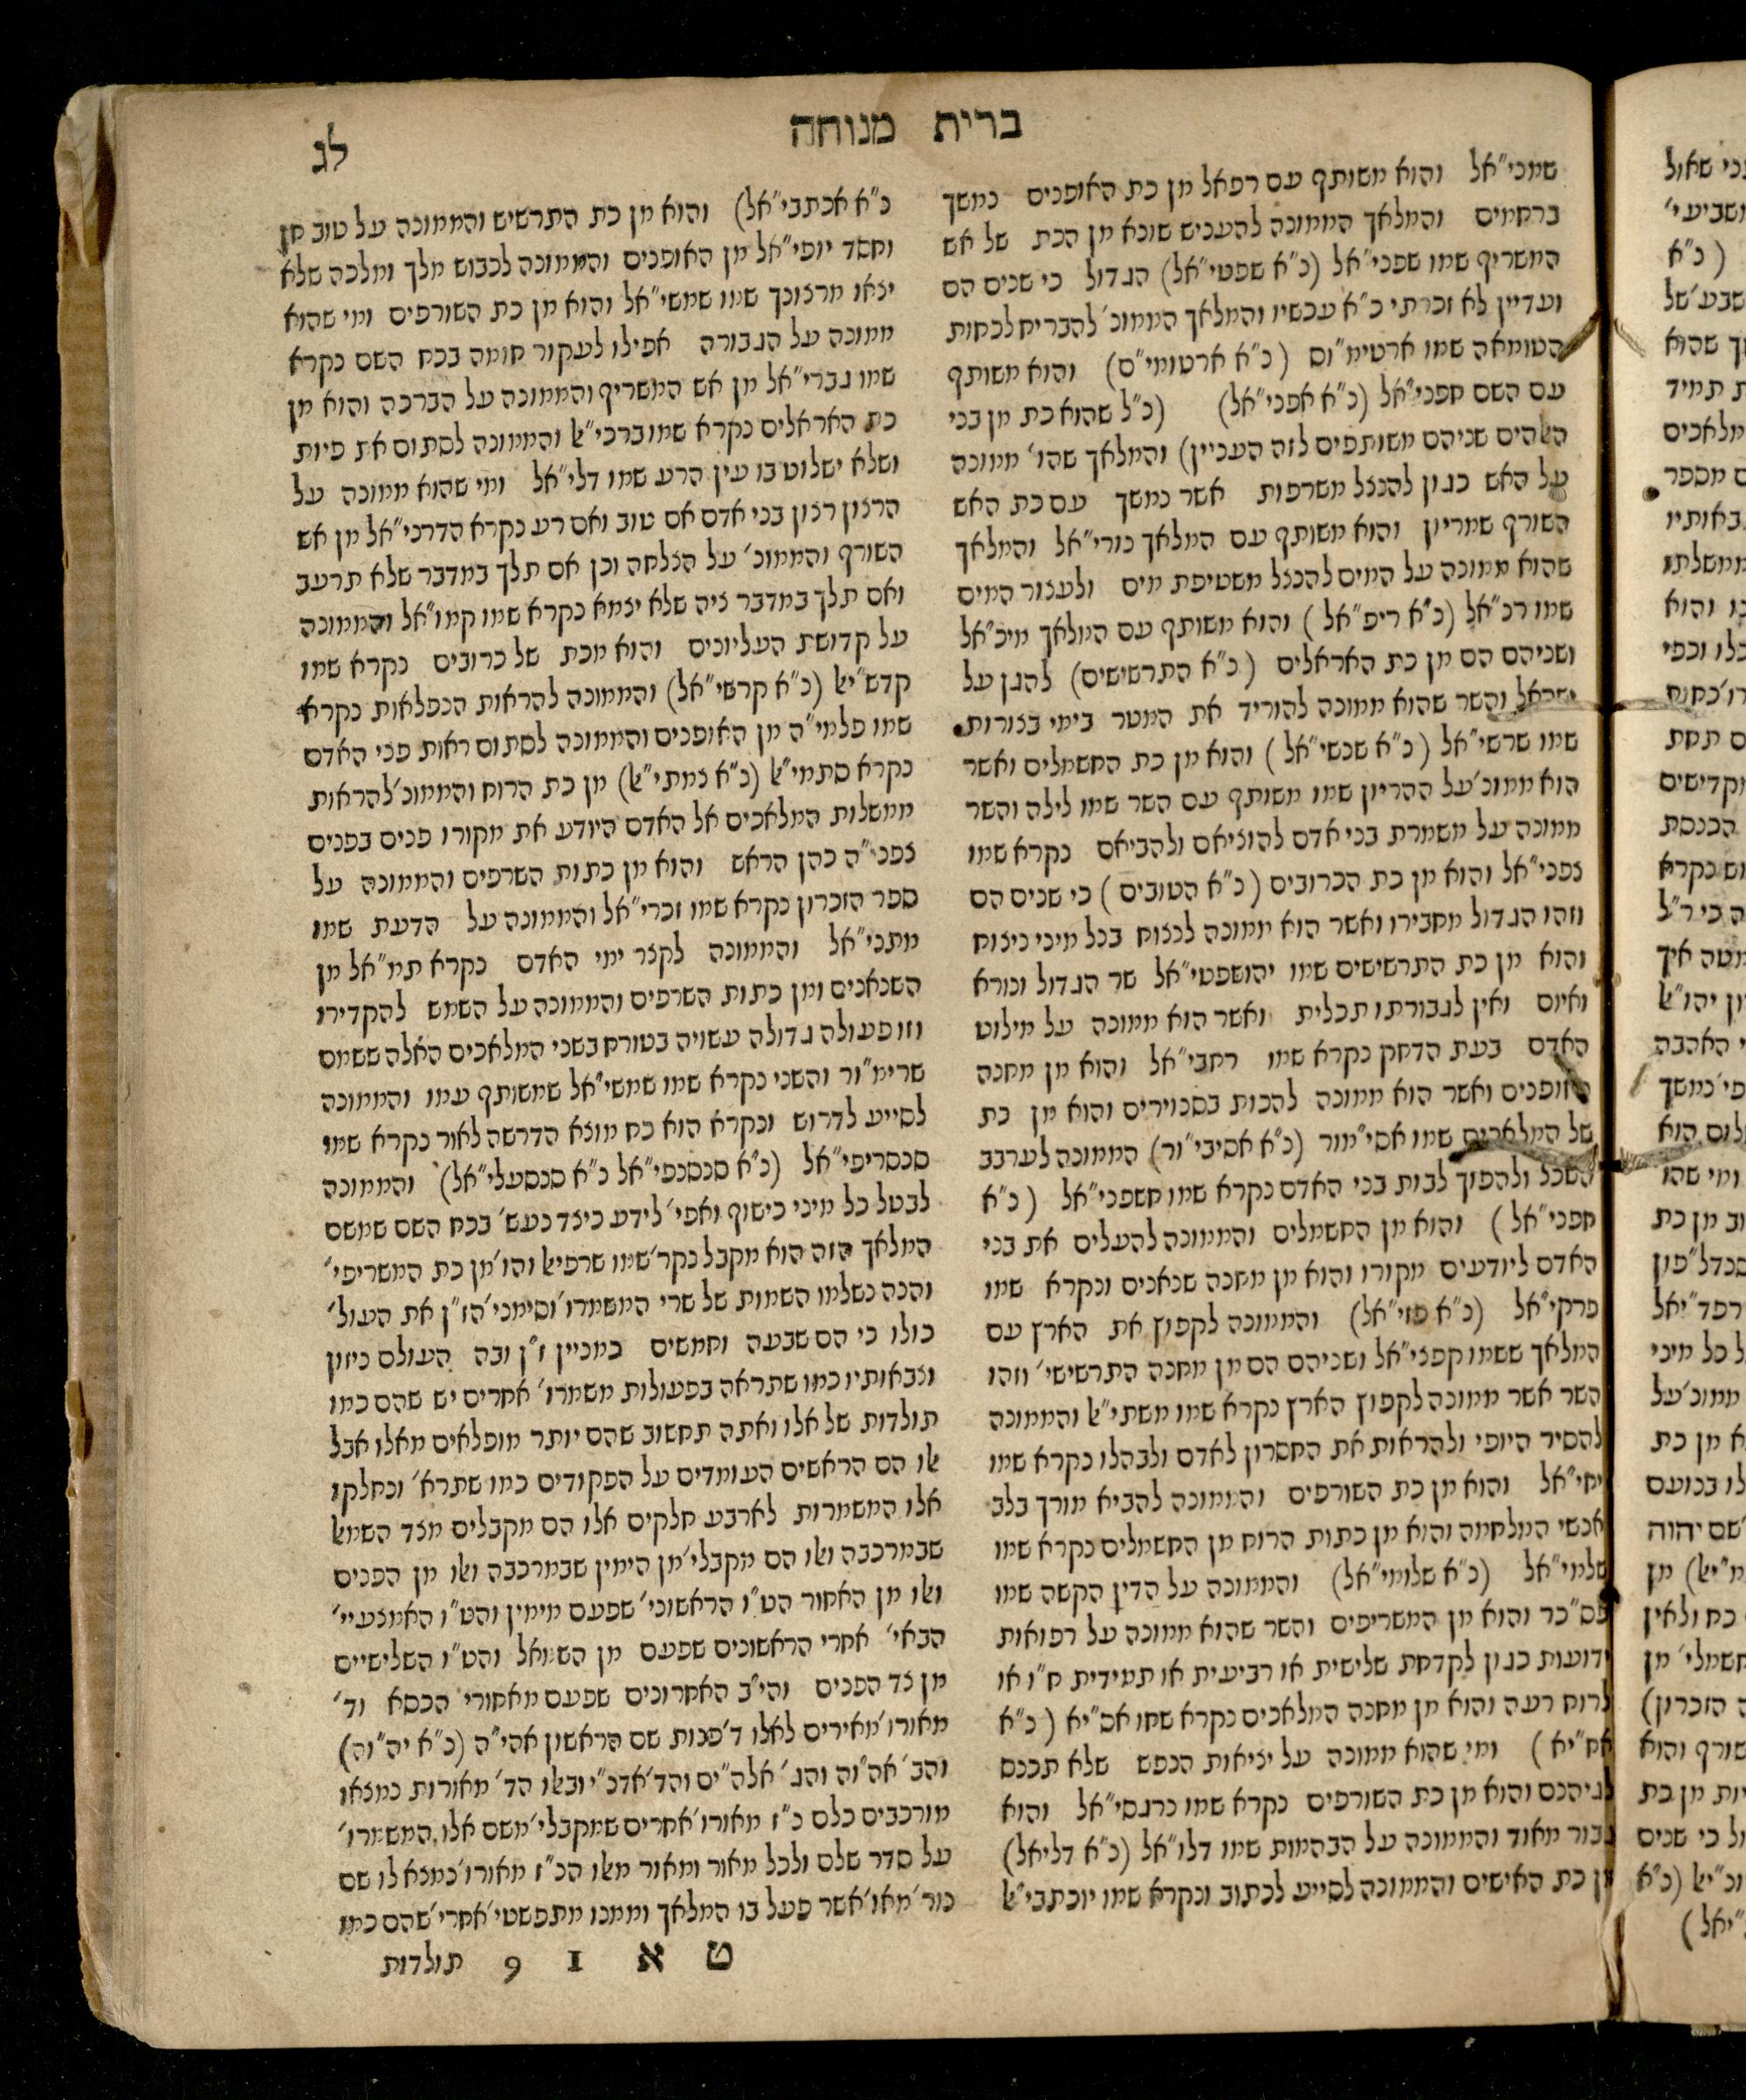 ברית מנוחה
לג
שמכי״אל והוא משותף עם רפאל מן כת האופנים נמשך
ברחמים והמלאך הממונה להעניש שונא מן הכת של אש
המשריף שמו שפני״אל (נ״א שפטי״אל) הגדול כי שנים הם
ועדיין לא זכרתי כ״א עכשיו והמלאך הממונ׳ להבריח לכחות
הטומאה שמו ארטימ״וס (נ״א ארטומי״ס) והוא משותף
עם השם חפני״אל (נ״א אפני״אל) (נ״ל שהוא כת מן בני
האלהים שניהם משותפים לזה העניין) והמלאך שהו׳ ממונה
על האש כגון להנצל משרפות אשר נמשך עם כת האש
השורף שמריון והוא משותף עם המלאך נורי״אל והמלאך
שהוא ממונה על המים להנצל משטיפת מים ולעצור המים
שמו רכ״אל (נ״א ריפ״אל) והוא משותף עם המלאך מיכ״אל
ושניהם הם מן כת האראלים (נ״א התרשישים) להגן על
ישראל והשר שהוא ממונה להוריד את המטר בימי בצורות
שמו שרשי״אל (נ״א שנשי״אל) והוא מן כת החשמלים ואשר
הוא ממונ׳ על ההריון שמו משותף עם השר שמו לילה והשר
ממונה על משמרת בני אדם להוציאם ולהביאם נקרא שמו
צפני״אל והוא מן כת הכרובים (נ״א הטובים) כי שנים הם
וזהו הגדול מחבירו ואשר הוא ממונה לנצוח בכל מיני ניצוח
והוא מן כת התרשישים שמו יהושפטי״אל שר הגדול ונורא
ואיום ואין לגבורתו תכלית ואשר הוא ממונה על מילוט
האדם בעת הדחק נקרא שמו רחבי״אל והוא מן מחנה
האופנים ואשר הוא ממונה להכות בסנוירים והוא מן כת
של המלאכים שמו אסי״מור (נ״א אסיבי״ור) הממונה לערבב
השכל ולהפוך לבות בני האדם נקרא שמו חשפני״אל (נ״א
חפני״אל) והוא מן החשמלים והממונה להעלים את בני
האדם ליודעים מקורו והוא מן מחנה שנאנים ונקרא שמו
פרקי״אל (נ״א פזי״אל) והממונה לקפוץ את הארץ עם
המלאך ששמו קפצי״אל ושניהם הם מן מחנה התרשישי׳ וזהו
השר אשר ממונה לקפוץ הארץ נקרא שמו משתי״אל והממונה
להסיר היופי ולהראות את החסרון לאדם ולבהלו נקרא שמו
יחי״אל והוא מן כת השורפים והממונה להביא מורך בלב
אנשי המלחמה והוא מן כתות הרוח מן החשמלים נקרא שמו
שלמי״אל (נ״א שלומי״אל) והממונה על הדין הקשה שמו
פס״כר והוא מן המשריפים והשר שהוא ממונה על רפואות
ידועות כגון לקדחת שלישית או רביעית או תמידית ח״ו או
לרוח רעה והוא מן מחנה המלאכים נקרא שמו אס״יא (נ״א
אח״יא) ומי שהוא ממונה על יציאות הנפש שלא תכנס
לגיהנם והוא מן כת השורפים נקרא שמו כרגסי״אל והוא
גבור מאוד והממונה על הבהמות שמו דלו״אל (נ״א דליאל)
מן כת האישים והממונה לסייע לכתוב ונקרא שמו יוכתבי״אל
נ״א אכתבי״אל) והוא מן כת התרשיש והממונה על טוב חן
וחסד יופי״אל מן האופנים והממונה לכבוש מלך ומלכה שלא
יצאו מרצונך שמו שמשי״אל והוא מן כת השורפים ומי שהוא
ממונה על הגבורה אפילו לעקור חומה בכח השם נקרא
שמו גברי״אל מן אש המשריף והממונה על הברכה והוא מן
כת האראלים נקרא שמו ברכי״אל והממונה לסתום את פיות
ושלא ישלוט בו עין הרע שמו דלי״אל ומי שהוא ממונה על
הרצון רצון בני אדם אם טוב ואם רע נקרא הדרני״אל מן אש
השורף והממונ׳ על הצלחה וכן אם תלך במדבר שלא תרעב
ואם תלך במדבר ציה שלא יצמא נקרא שמו קמו״אל והממונה
על קדושת העליונים והוא מכת של כרובים נקרא שמו
קדש״יאל (נ״א קרשי״אל) והממונה להראות הנפלאות נקרא
שמו פלמי״ה מן האופנים והממונה לסתום ראות פני האדם
נקרא סתמי״אל (נ״א צמתי״אל) מן כת הרוח והממונ׳ להראות
ממשלות המלאכים אל האדם היודע את מקורו פנים בפנים
צפני״ה כהן הראש והוא מן כתות השרפים והממונה על
ספר הזכרון נקרא שמו זכרי״אל והממונה על הדעת שמו
מתני״אל והממונה לקצר ימי האדם נקרא תמ״אל מן
השנאנים ומן כתות השרפים והממונה על השמש להקדירו
וזו פעולה גדולה עשויה בטורח בשני המלאכים האלה ששמם
שרימ״ור והשני נקרא שמו שמשי״אל שמשותף עמו והממונה
לסייע לדרוש ונקרא הוא כח מוצא הדרשה לאור נקרא שמו
סנסריפי״אל (נ״א סנסנפי״אל נ״א סנסעלי״אל) והממונה
לבטל כל מיני כישוף ואפי׳ לידע כיצד נעש׳ בכח השם שמשם
המלאך הזה הוא מקבל נקר׳ שמו שרפיאל והו׳ מן כת המשריפי׳
והנה נשלמו השמות של שרי המשמרו׳ וסימני׳ הז״ן את העול׳
כולו כי הם שבעה וחמשים כמניין ז״ן ובה העולם ניזון
וצבאותיו כמו שתראה בפעולות משמרו׳ אחרים יש שהם כמו
תולדות של אלו ואתה תחשוב שהם יותר מופלאים מאלו אבל
אלו הם הראשים העומדים על הפקודים כמו שתרא׳ ונחלקו
אלו המשמרות לארבע חלקים אלו הם מקבלים מצד השמאל
שבמרכבה ואלו הם מקבלי׳ מן הימין שבמרכבה ואלו מן הפנים
ואלו מן האחור הט״ו הראשוני׳ שפעם מימין והט״ו האמצעיי׳
הבאי׳ אחרי הראשונים שפעם מן השמאל והט״ו השלישיים
מן צד הפנים והי״ב האחרונים שפעם מאחורי הכסא וד׳
מאורו׳ מאירים לאלו ד׳ פנות שם הראשון אהי״ה (נ״א יה״וה)
והב׳ אה״וה והג׳ אלה״ים והד׳ אדנ״י ובאלו הד׳ מאורות נמצאו
מורכבים כלם כ״ז מאורו׳ אחרים שמקבלי׳ משם אלו המשמרו׳
על סדר שלם ולכל מאור ומאור מאלו הכ״ז מאורו׳ נמצא לו שם
כור׳ מאו׳ אשר פעל בו המלאך וממנו מתפשטי׳ אחרי׳ שהם כמו
ט א 1 9 תולדות
נכי שאול
(נ״א
ך שהוא
ת תמיד
מלאכים
ם מספר
ממשלתו
ו והוא
ס תחת
הכנסת
וש נקרא
ה כי ר״ל
י האהבה
לום הוא
ומי שהו
וב מן כת
ל כל מיני
ממונ׳ על
א מן כת
לו בכועס
שם יהוה
כח ולאין
ה הזכרון)
שורף והוא
יות מן כת
ול כי שנים
וכ״יאל (נ״א
״יאל)